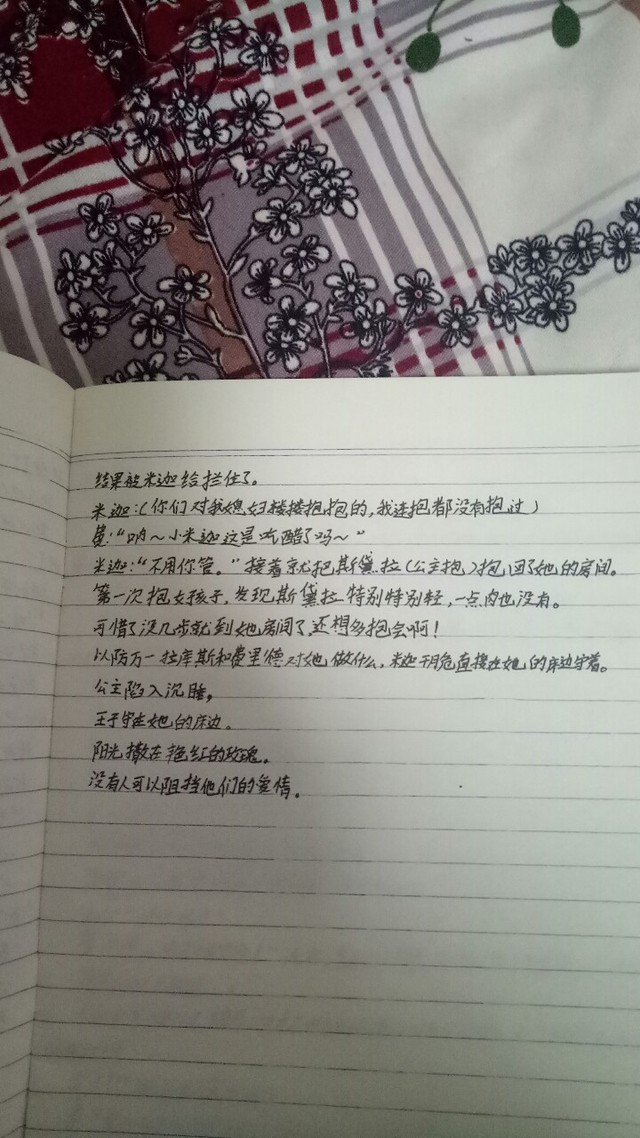 结果被米迦给拦住了。
米迦:(你们对我媳妇搂搂抱抱的,我连抱都没有抱过)
费:“呐~小米迦这是吃醋了吗~”
米迦:“不用你管。”接着就把斯黛拉(公主抱)抱回了她的房间。
第一次抱女孩子,发现斯黛拉特别特别轻,一点肉也没有。
可惜了没几步就到她房间了,还想多抱会啊!
以防万一拉库斯和费里德对她做什么,米迦干脆直接在她的床边守着。
公主陷入沉睡,
王子守在她的床边。
阳光撒在艳红的玫瑰。
没有人可以阻挡他们的爱情。